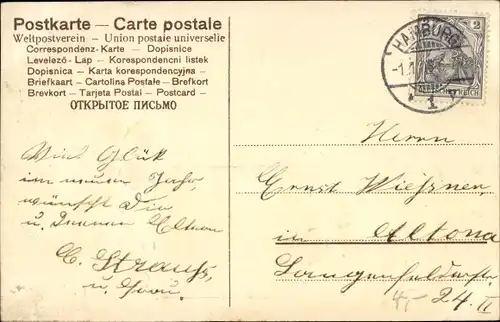 Postkarte — Carte postale
Weltpostverein – Union postale universelle
Correspondenz-Karte – Dopisnice
Levelező-Lap – Korespondencni listek
Dopisnica – Karta korespondencyjna
Briefkaart – Cartolina Postale – Brefkort
Brevkort – Tarjeta Postal – Postcard –
ОТКРЫТОЕ ПИСЬМО
HAMBURG
1
2
DEUTSCHES REICH
Viel Glück
im neuen Jahr,
wünscht Dir
u. Deinen Eltern
C. Strauss,
u. Frau.
Herrn
Ernst Wiessner,
in Altona
Langenfelderstr.
24. II
4,-